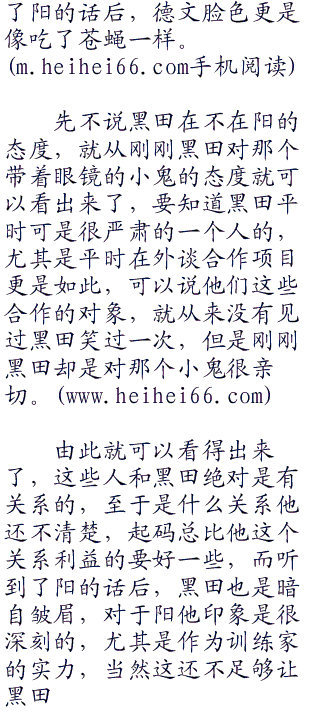 了阳的话后，德文脸色更是
像吃了苍蝇一样。
(m.heihei66.com手机阅读)
先不说黑田在不在阳的
态度，就从刚刚黑田对那个
带着眼镜的小鬼的态度就可
以看出来了，要知道黑田平
时可是很严肃的一个人的，
尤其是平时在外谈合作项目
更是如此，可以说他们这些
合作的对象，就从来没有见
过黑田笑过一次，但是刚刚
黑田却是对那个小鬼很亲
切。(www.heihei66.com)
由此就可以看得出来
了，这些人和黑田绝对是有
关系的，至于是什么关系他
还不清楚，起码总比他这个
关系利益的要好一些，而听
到了阳的话后，黑田也是暗
自皱眉，对于阳他印象是很
深刻的，尤其是作为训练家
的实力，当然这还不足够让
黑田